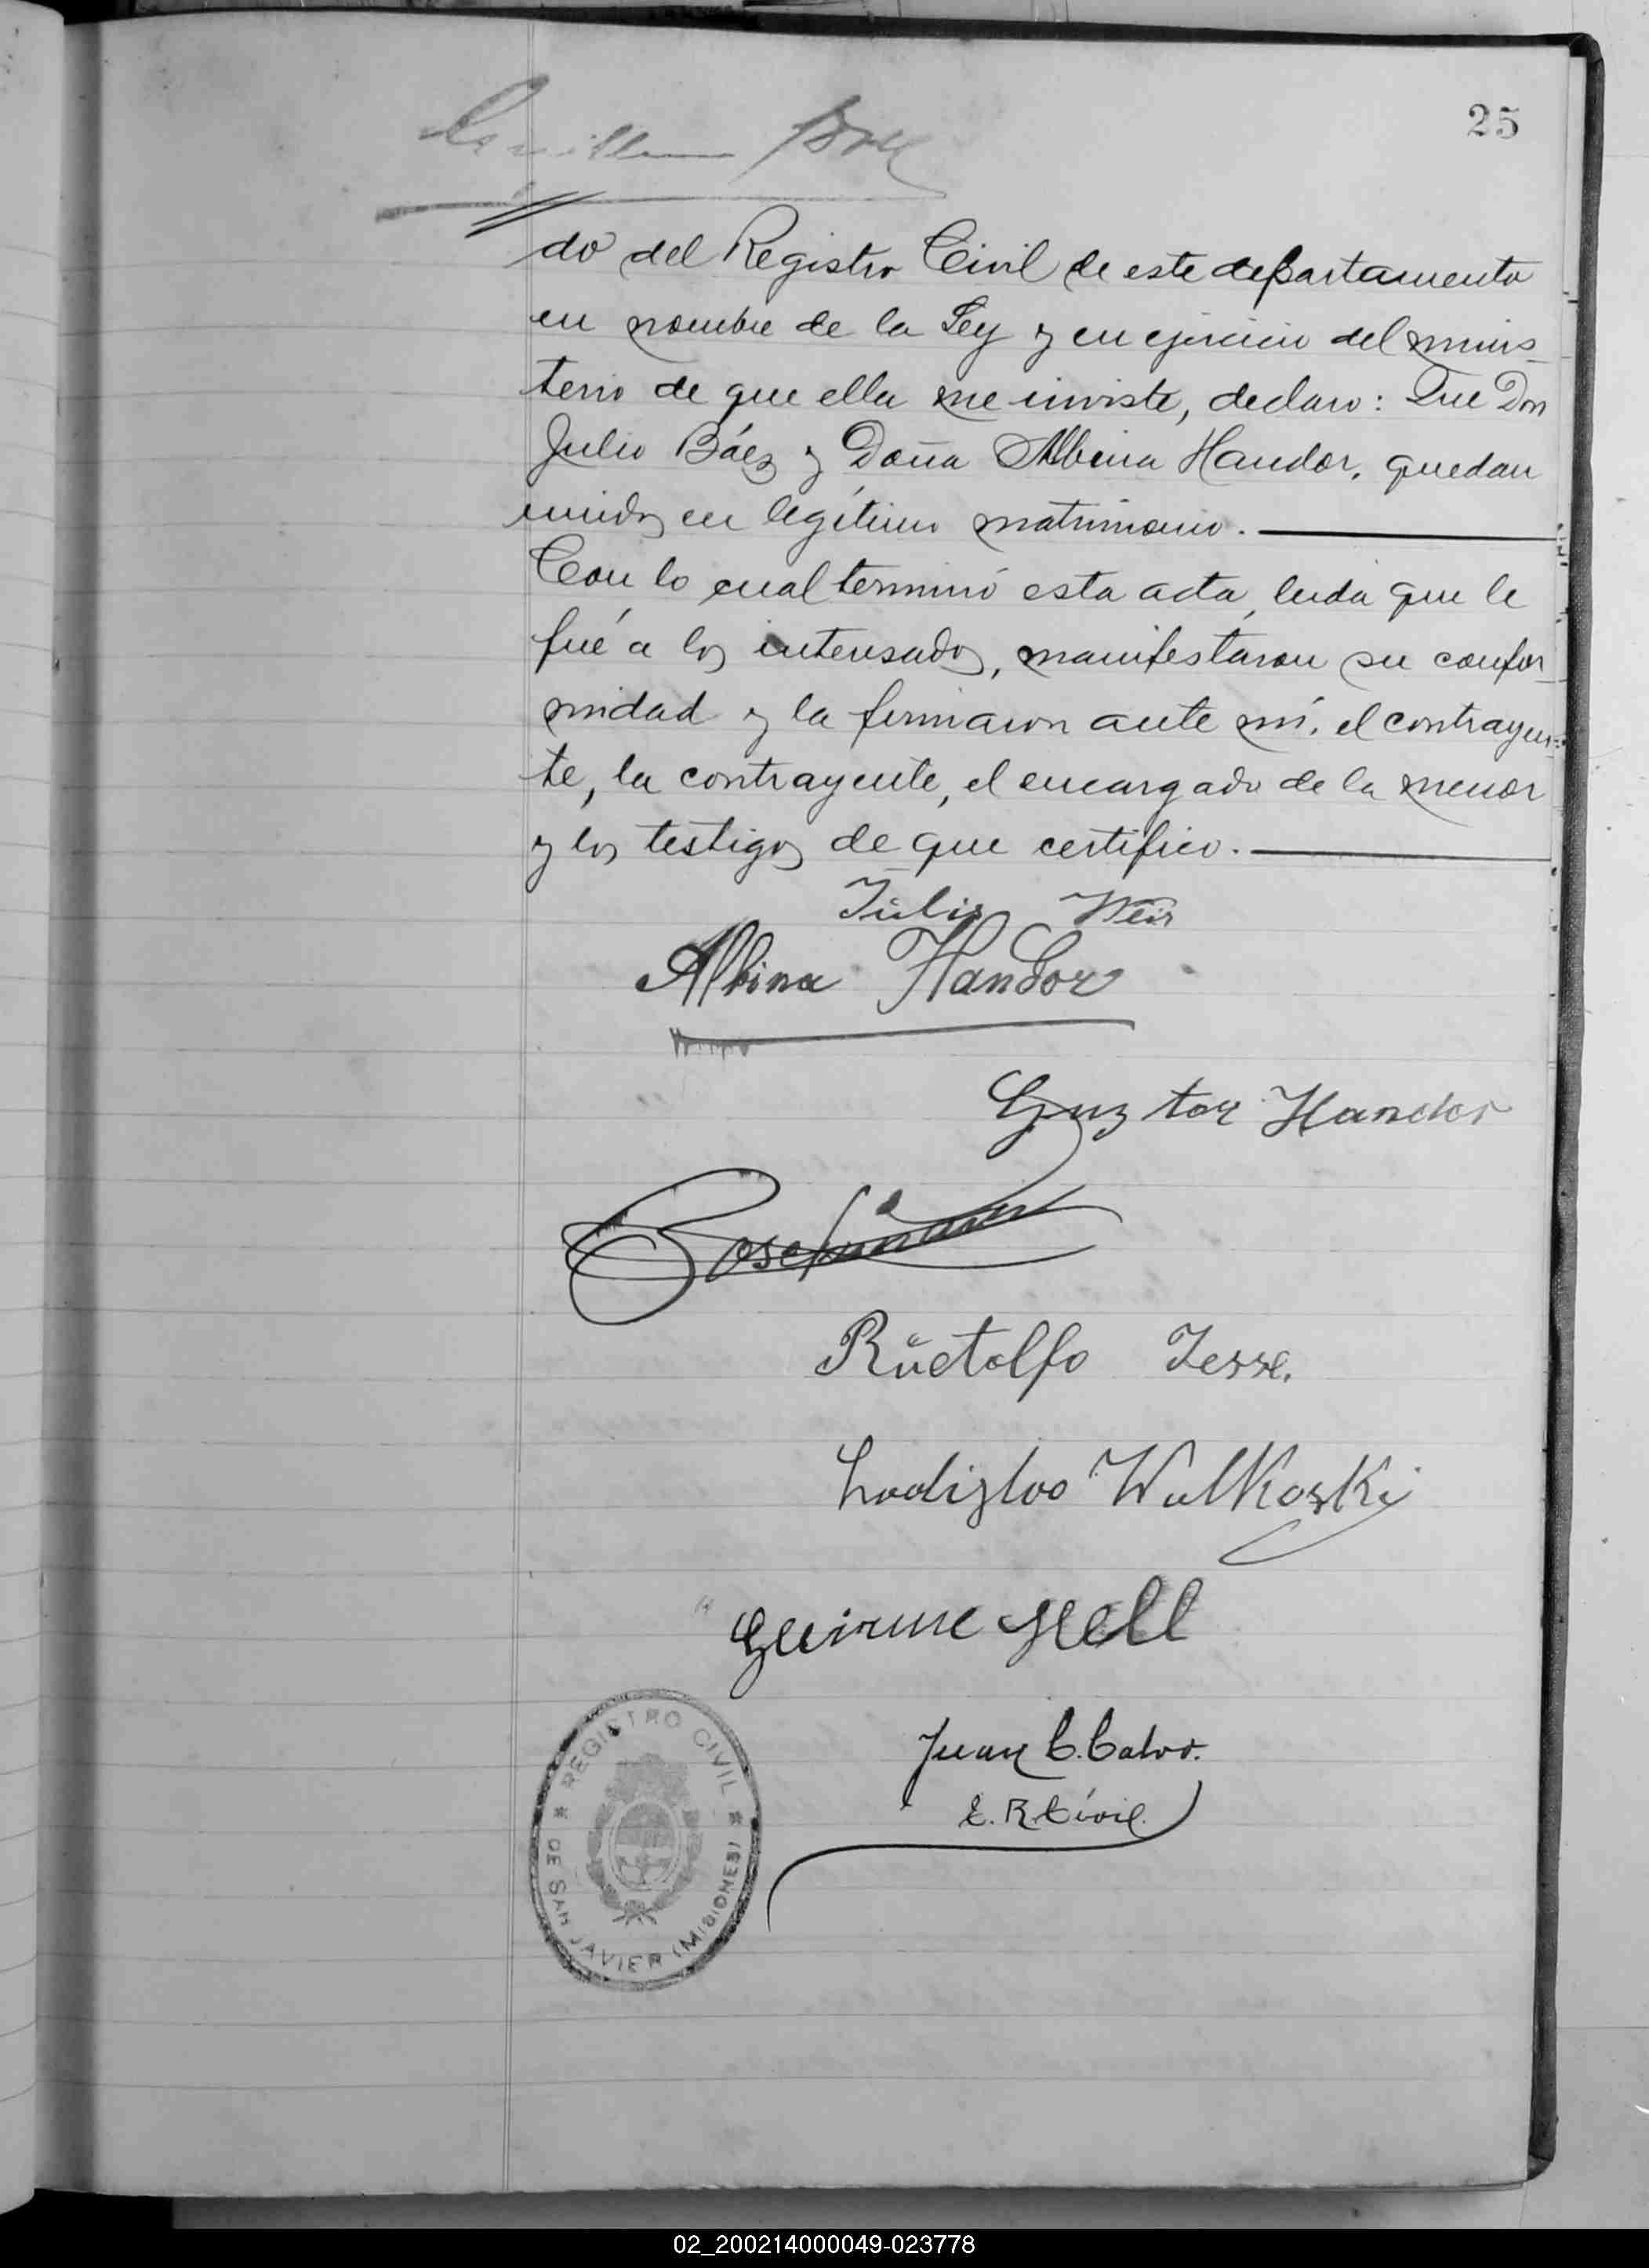 25
do del Registro Civil de este departamento
en nombre de la Ley y en ejercicio del minis-
terio de que ella me inviste, declaro: Que Don
Julio Báez y Doña Albina Handor, quedan
unidos en legítimo matrimonio.
Con lo cual terminó esta acta, leida que le
fué a los interesados, manifestaron su confor-
midad y la firmaron ante mí, el contrayen-
te, la contrayente, el encargado de la menor
y los testigos de que certifico.
Julio
Albina Handor
Handor
Rudolfo Jesse.
Ladizlao Walkoski
Juan C. Calvo.
E. R. Civil.
REGISTRO CIVIL
DE SAN JAVIER (MISIONES)
02_200214000049-023778